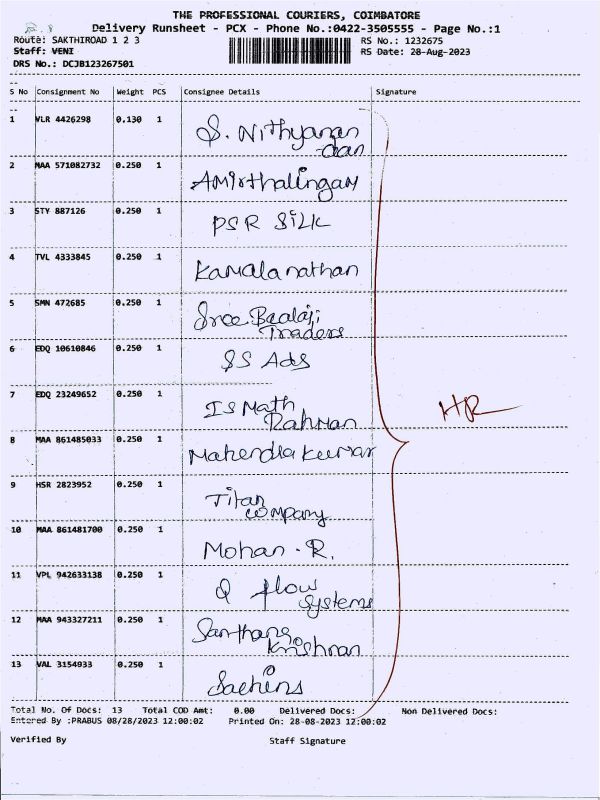 THE PROFESSIONAL COURIERS, COIMBATORE
Delivery Runsheet - PCX - Phone No.:0422-3505555 - Page No.:1
Route: SAKTHIROAD 1 2 3 RS No.: 1232675
Staff: VENI RS Date: 28-Aug-2023
DRS No.: DCJB123267501
S No Consignment No Weight PCS Consignee Details Signature
1 VLR 4426298 0.130 1 S. Nithyanan
dan
2 MAA 571082732 0.250 1 Amirthalingam
3 STY 887126 0.250 1 PSR SILK
4 TVL 4333845 0.250 1 Kamalanathan
5 SMN 472685 0.250 1 Sree Baalaji
Traders
6 EDQ 10610846 0.250 1 SS Ads
7 EDQ 23249652 0.250 1 ISMath
Rahman
HR
8 MAA 861485033 0.250 1 Mahendra kumar
9 HSR 2823952 0.250 1 Titan
company
10 MAA 861481700 0.250 1 Mohan . R.
11 VPL 942633138 0.250 1 Q flow
systems
12 MAA 943327211 0.250 1 Santhana
Krishnan
13 VAL 3154933 0.250 1 Sachins
Total No. Of Docs: 13 Total COD Amt: 0.00 Delivered Docs: Non Delivered Docs:
Entered By :PRABUS 08/28/2023 12:00:02 Printed On: 28-08-2023 12:00:02
Verified By Staff Signature